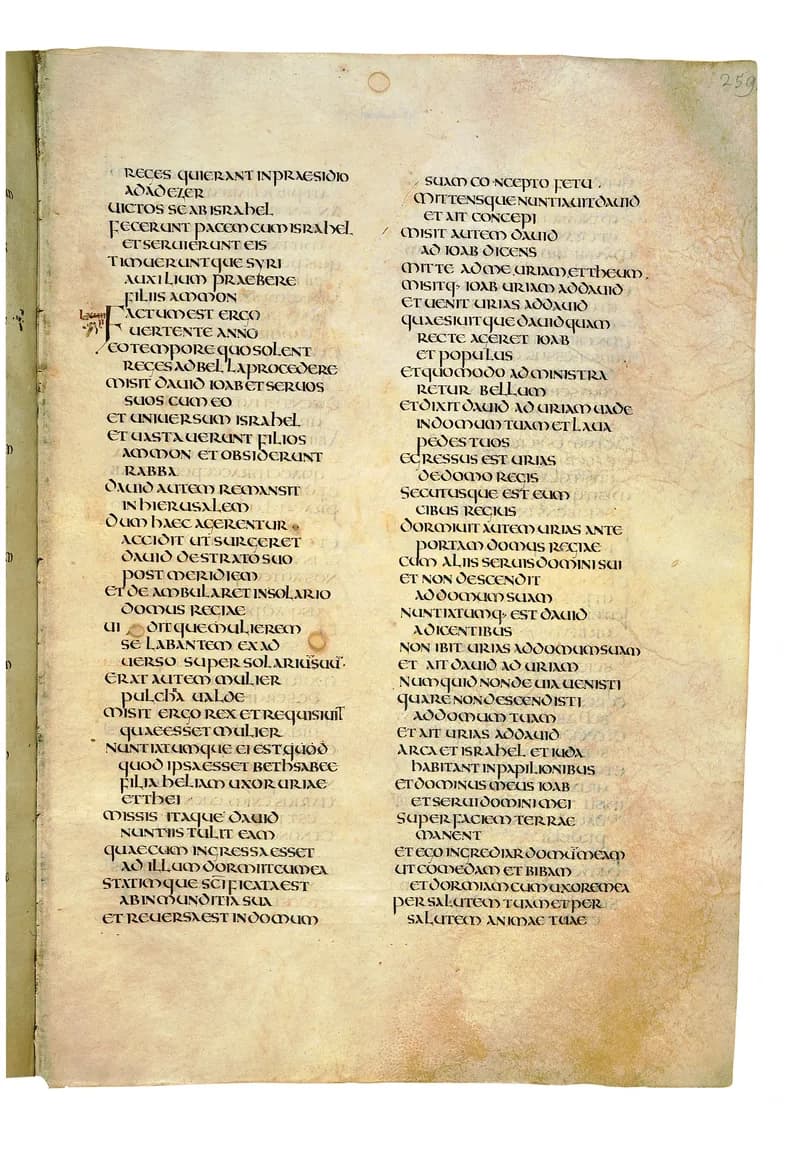 259
REGES QUI ERANT IN PRAESIDIO
ADADEZER
UICTOS SE AB ISRAHEL
FECERUNT PACEM CUM ISRAHEL
ET SERUIERUNT EIS
TIMUERUNTQUE SYRI
AUXILIUM PRAEBERE
FILIIS AMMON
FACTUM EST ERGO
UERTENTE ANNO
EO TEMPORE QUO SOLENT
REGES AD BELLA PROCEDERE
MISIT DAUID IOAB ET SERUOS
SUOS CUM EO
ET UNIUERSUM ISRAHEL
ET UASTAUERUNT FILIOS
AMMON ET OBSIDERUNT
RABBA
DAUID AUTEM REMANSIT
IN HIERUSALEM
DUM HAEC AGERENTUR
ACCIDIT UT SURGERET
DAUID DE STRATO SUO
POST MERIDIEM
ET DEAMBULARET IN SOLARIO
DOMUS REGIAE
UIDITQUE MULIEREM
SE LABANTEM EX AD
UERSO SUPER SOLARIŪ SUŪ
ERAT AUTEM MULIER
PULCHRA UALDE
MISIT ERGO REX ET REQUISIUIT
QUAE ESSET MULIER
NUNTIATUMQUE EI EST QUOD
QUOD IPSA ESSET BETHSABEE
FILIA HELIAM UXOR URIAE
ETTHEI
MISSIS ITAQUE DAUID
NUNTIIS TULIT EAM
QUAE CUM INGRESSA ESSET
AD ILLUM DORMIIT CUM EA
STATIMQUE SC̄IFICATA EST
AB INMUNDITIA SUA
ET REUERSA EST IN DOMUM
SUAM CONCEPTO FETU
MITTENSQUE NUNTIAUIT DAUID
ET AIT CONCEPI
MISIT AUTEM DAUID
AD IOAB DICENS
MITTE AD ME URIAM ETTHEUM
MISITQ· IOAB URIAM AD DAUID
ET UENIT URIAS AD DAUID
QUAESIUITQUE DAUID QUAM
RECTE AGERET IOAB
ET POPULUS
ET QUOMODO ADMINISTRA
RETUR BELLUM
ET DIXIT DAUID AD URIAM UADE
IN DOMUM TUAM ET LAUA
PEDES TUOS
EGRESSUS EST URIAS
DE DOMO REGIS
SECUTUSQUE EST EUM
CIBUS REGIUS
DORMIUIT AUTEM URIAS ANTE
PORTAM DOMUS REGIAE
CUM ALIIS SERUIS DOMINI SUI
ET NON DESCENDIT
AD DOMUM SUAM
NUNTIATUMQ· EST DAUID
A DICENTIBUS
NON IBIT URIAS AD DOMUM SUAM
ET AIT DAUID AD URIAM
NUMQUID NON DE UIA UENISTI
QUARE NON DESCENDISTI
AD DOMUM TUAM
ET AIT URIAS AD DAUID
ARCA ET ISRAHEL ET IUDA
HABITANT IN PAPILIONIBUS
ET DOMINUS MEUS IOAB
ET SERUI DOMINI MEI
SUPER FACIEM TERRAE
MANENT
ET EGO INGREDIAR DOMUM MEAM
UT COMEDAM ET BIBAM
ET DORMIAM CUM UXORE MEA
PER SALUTEM TUAM ET PER
SALUTEM ANIMAE TUAE